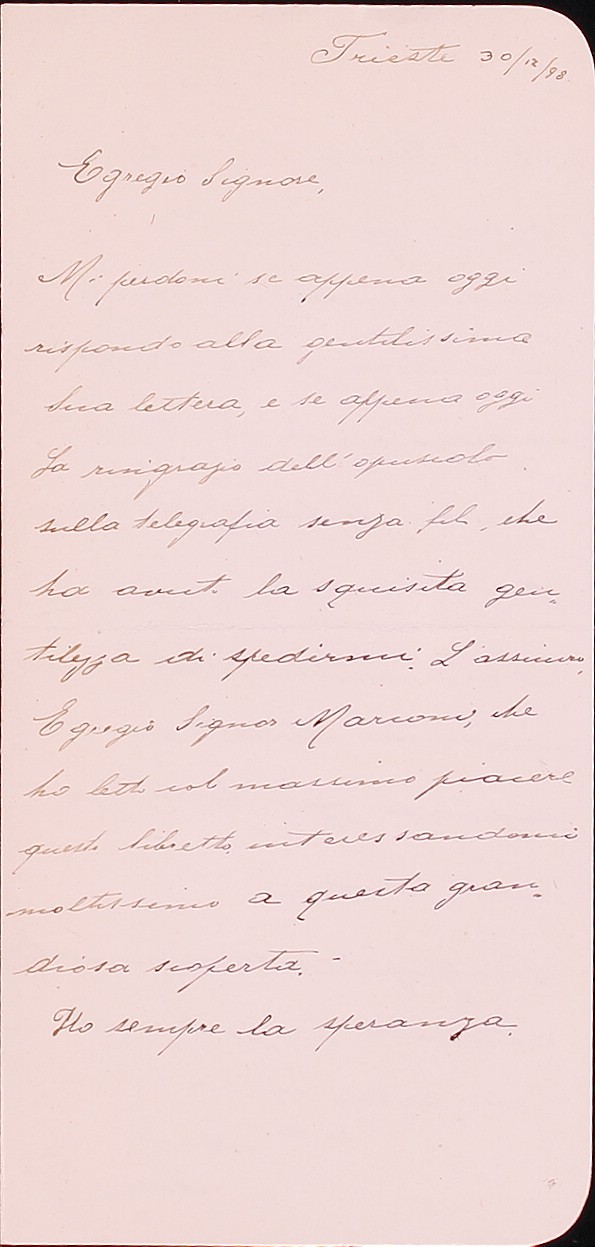 Trieste 30/12/98.
Egregio Signore,
Mi perdoni se appena oggi
rispondo alla gentilissima
Sua lettera, e se appena oggi
La ringrazio dell'opuscolo
sulla telegrafia senza fili, che
ha avuto la squisita gen-
tilezza di spedirmi. L'assicuro,
Egregio Signor Marconi, che
ho letto col massimo piacere
questo libretto, interessandomi
moltissimo a questa gran-
diosa scoperta. -
Ho sempre la speranza,